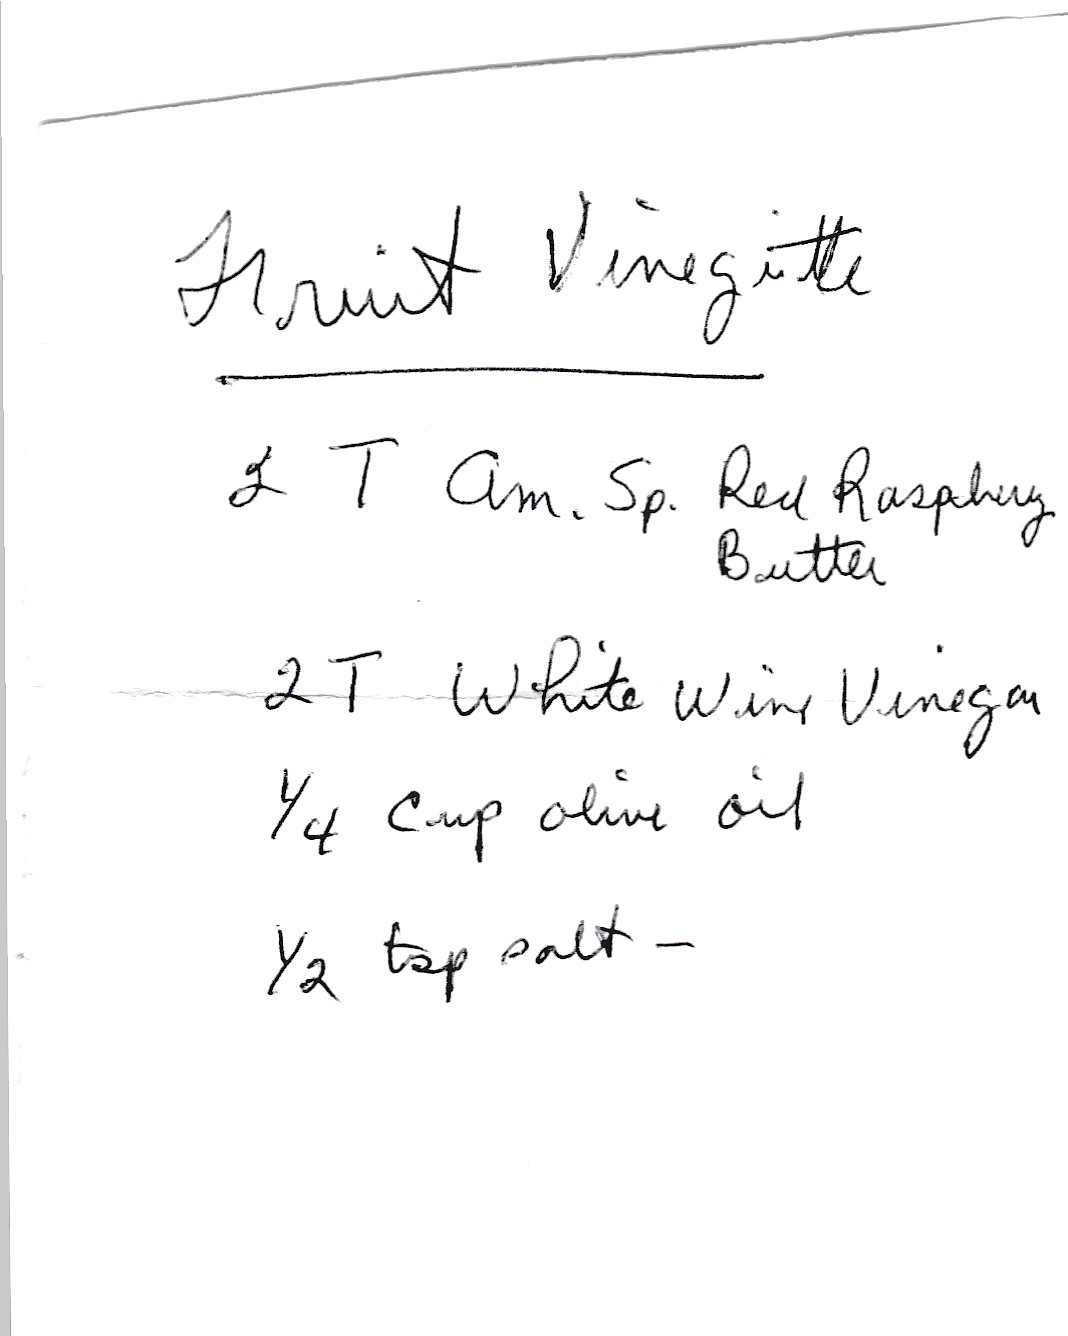 Fruit Vinegitte
2 T Am. Sp. Red Raspberry
Butter
2 T White Wine Vinegar
1/4 cup olive oil
1/2 tsp salt –